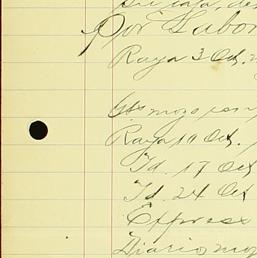 Por Labor
Raya 3 Oct.
Gts mozo
Raya 10 Oct.
Id. 17 Oct
Id. 24 Oct
Express
Diario mo